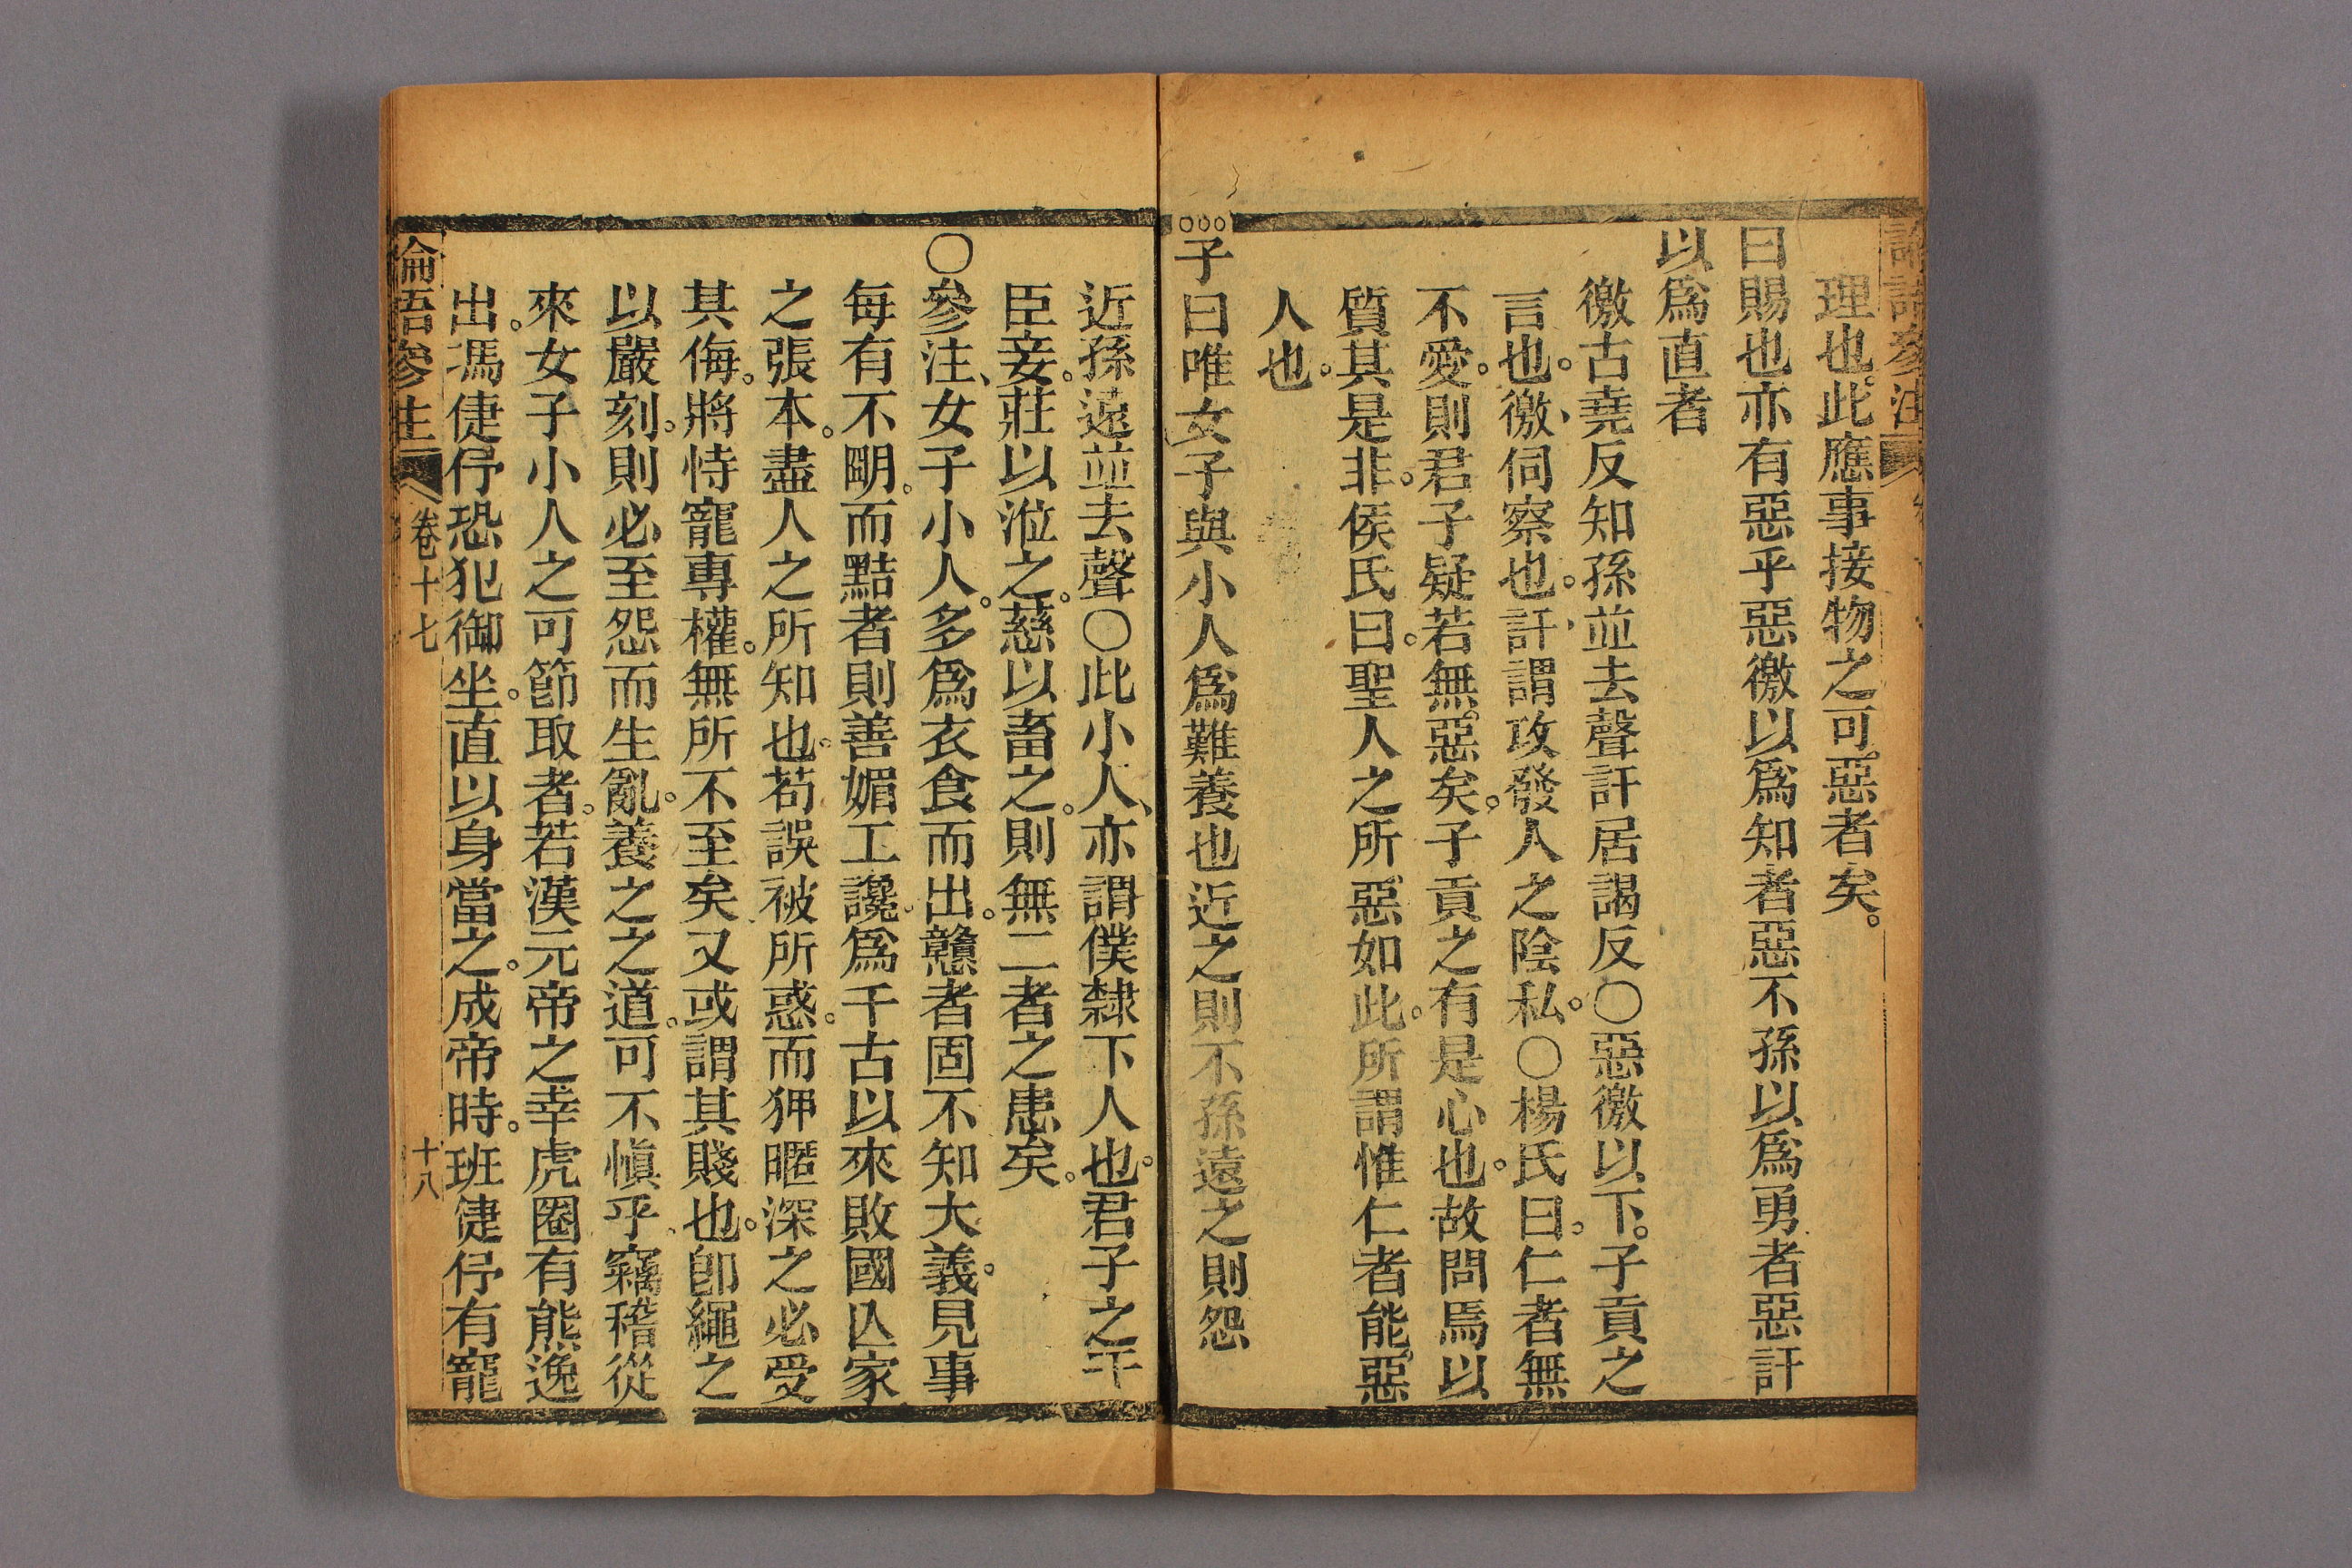 論語參注
理也。此應事接物之可。惡者矣。
曰賜也亦有惡乎惡徼以爲知者惡不孫以爲勇者惡訐
以爲直者
徼古堯反知孫並去聲訐居謁反〇惡徼以下。子貢之
言也。徼、伺察也。訐、謂攻發人之陰私。〇楊氏曰。仁者無
不愛。則君子疑若無。惡矣。子貢之有是心也。故問焉以
質其是非。侯氏曰。聖人之所。惡如此。所謂惟仁者能。惡
人也。
子曰唯女子與小人爲難養也近之則不孫遠之則怨
近孫遠並去聲〇此小人、亦謂僕隸下人也。君子之于
臣妾。莊以涖之。慈以畜之。則無二者之患矣。
〇參注、女子小人。多爲衣食而出。戇者固不知大義。見事
每有不明。而黠者則善媚工讒。爲千古以來敗國亾家
之張本。盡人之所知也。苟誤被所惑。而狎暱深之必受
其侮。將恃寵專權。無所不至矣又或謂其賤也。卽繩之
以嚴刻。則必至怨而生亂。養之之道。可不愼乎。竊稽從
來女子小人之可節取者。若漢元帝之幸虎圈有熊逸
出。馮倢伃恐犯御坐。直以身當之。成帝時。班倢伃有寵
論語參注 卷十七 十八